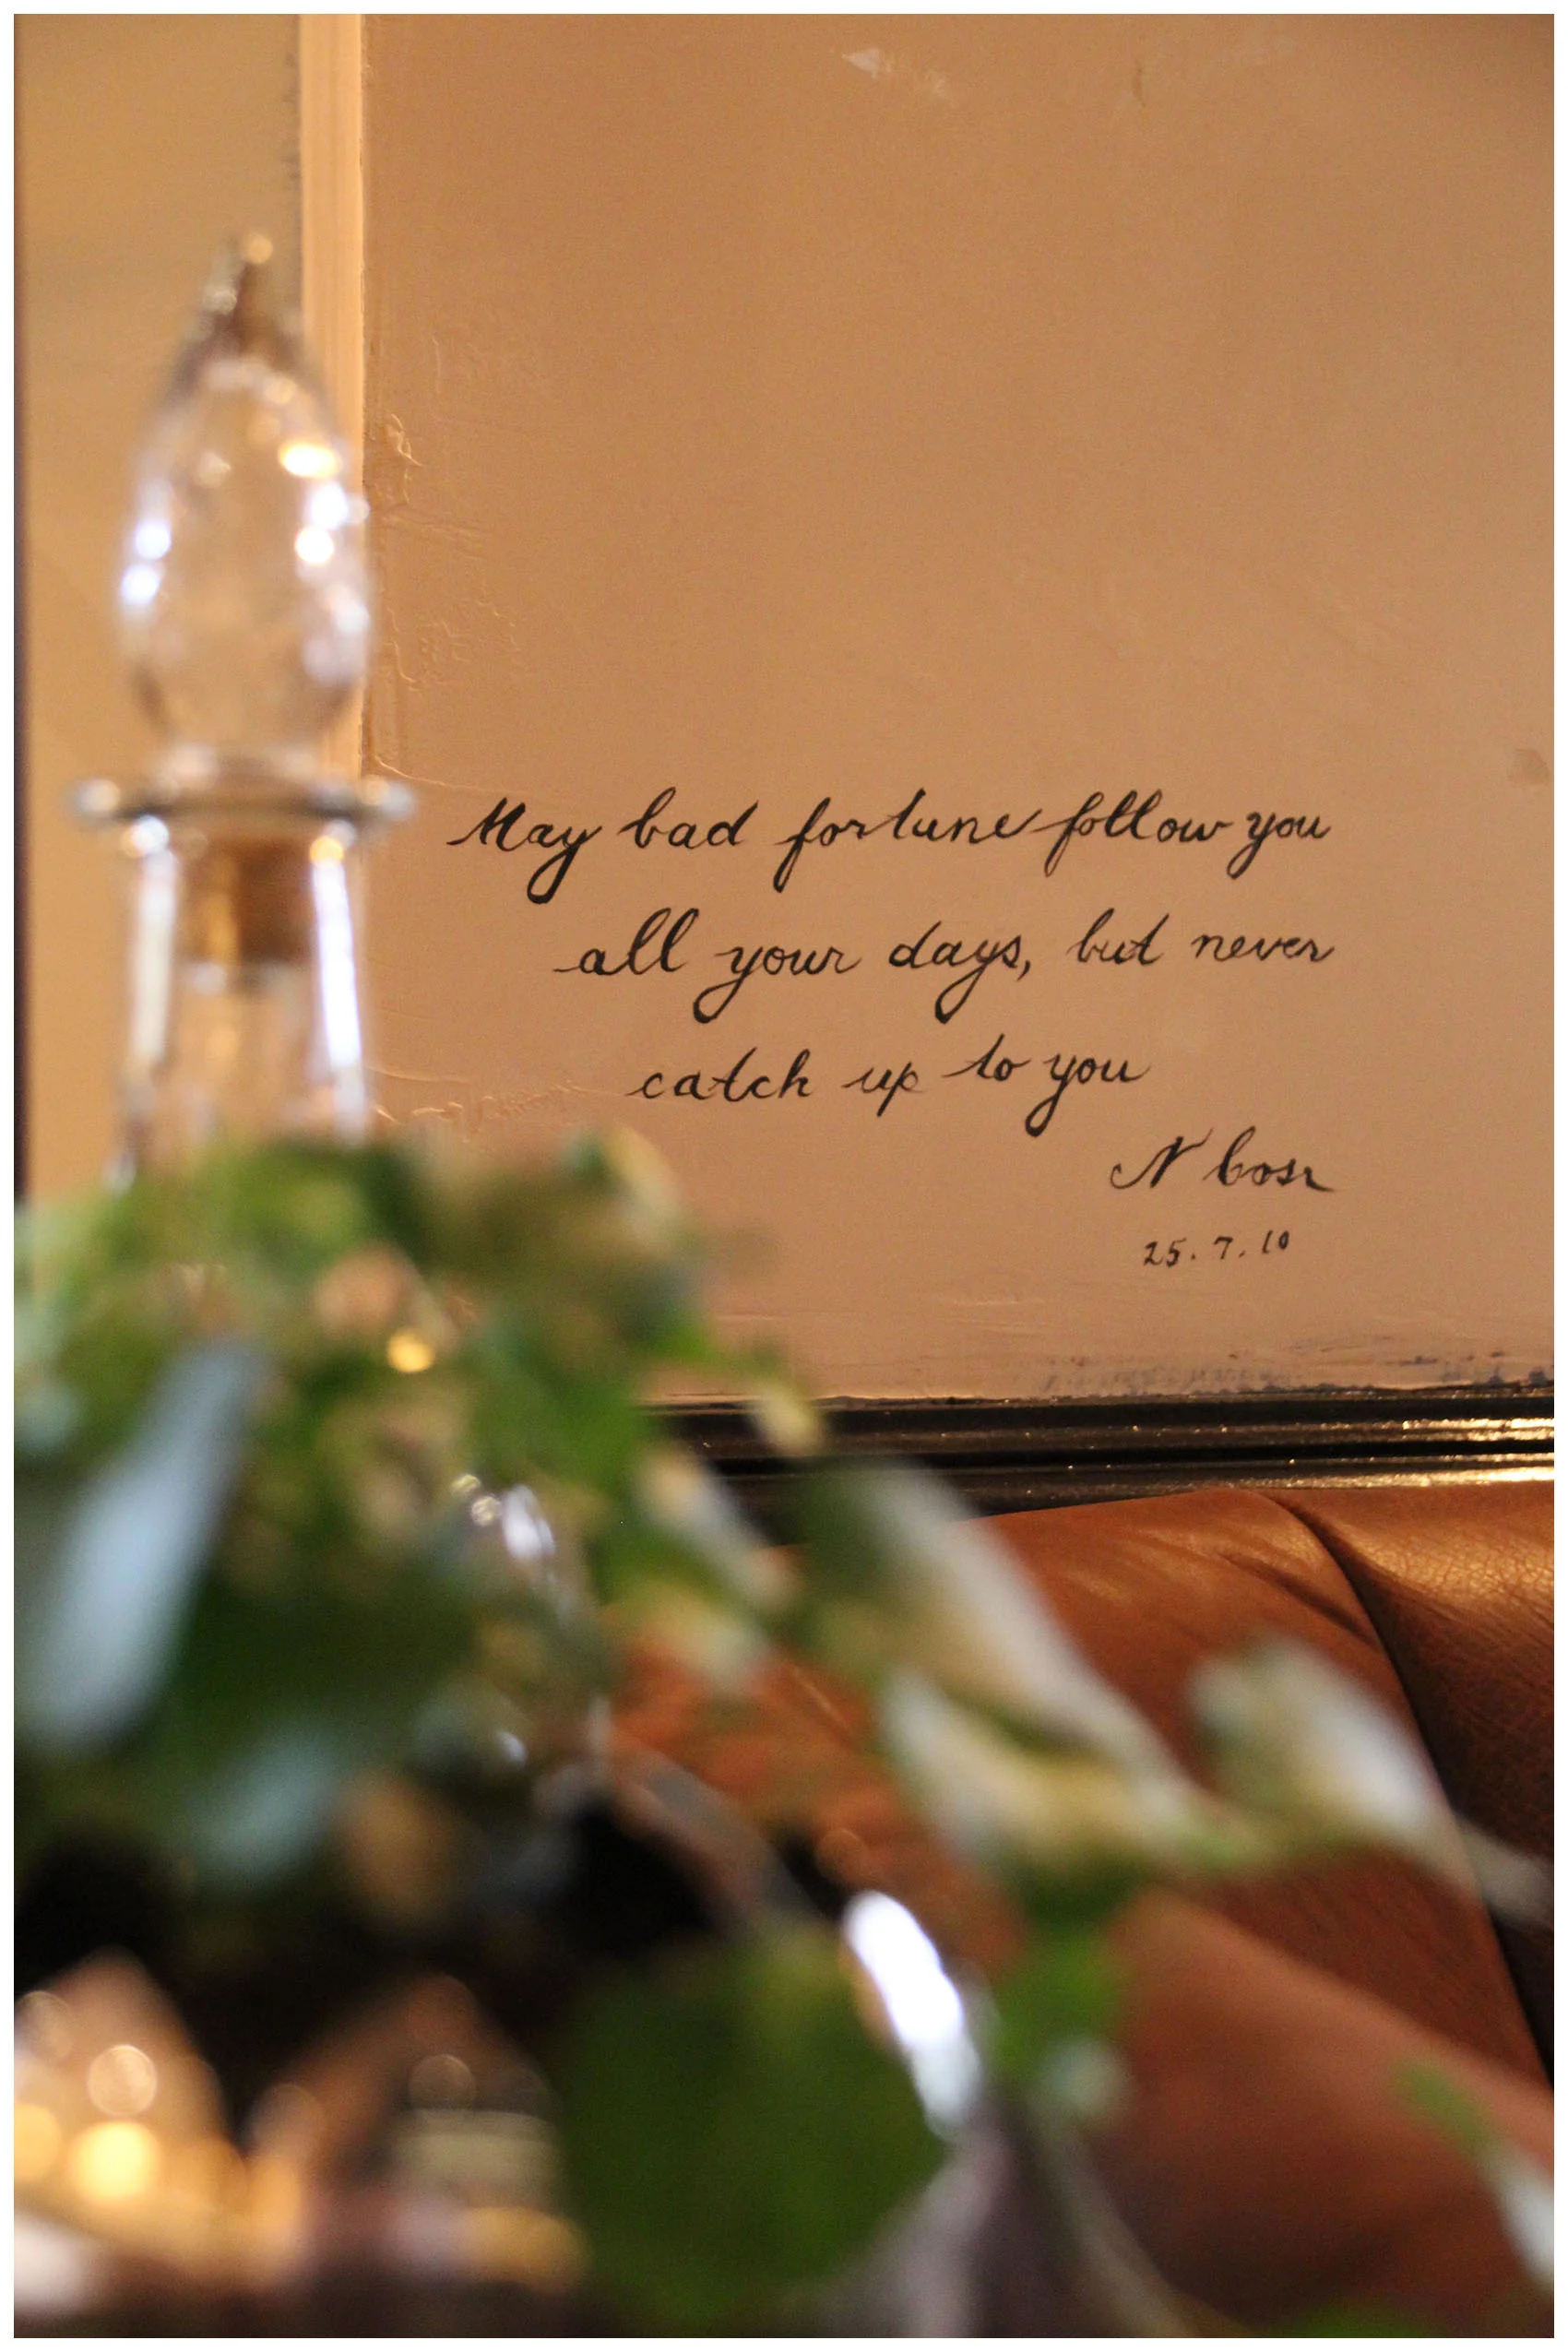 May bad fortune follow you
all your days, but never
catch up to you
N bosr
25.7.10